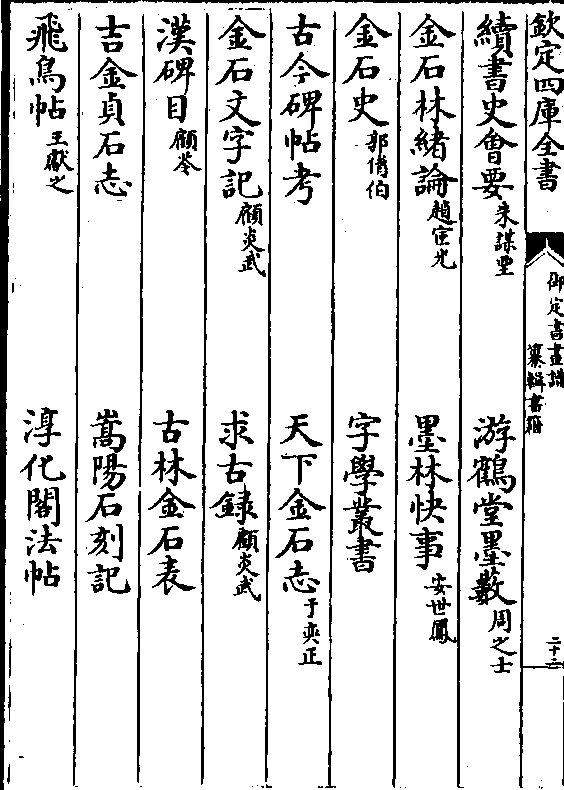 欽定四庫全書
御定書畫譜
纂輯書籍
二十二
續書史會要朱謀垔 游鶴堂墨藪周之士
金石林緒論趙宧光 墨林快事安世鳳
金石史郭偹伯 字學叢書
古今碑帖考 天下金石志于奕正
金石文字記顧炎武 求古録顧炎武
漢碑目顧苓 古林金石表
吉金貞石志 嵩陽石刻記
飛鳥帖王獻之 淳化閣法帖